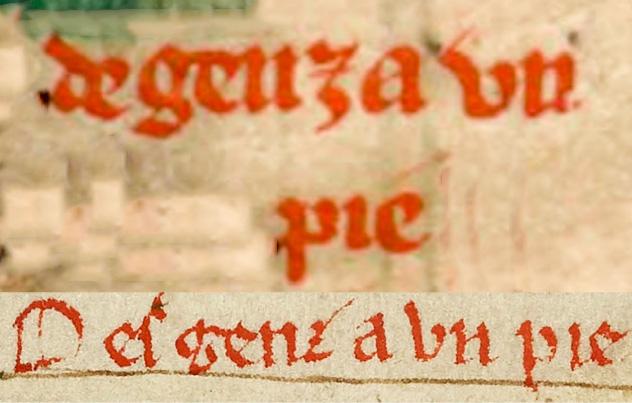 de genza vn
pie
Del genz a vn pie